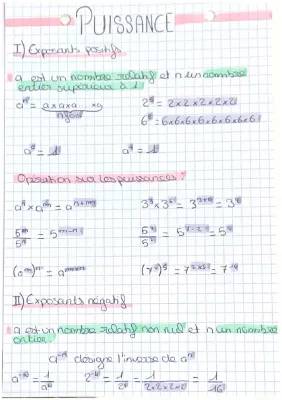 PUISSANCE
I) Exposants positifs
a est un nombre relatif et n un nombre
entier supérieur à 1
aⁿ = a×a×a... ×a
n fois
2⁵ = 2×2×2×2×2
6⁶ = 6×6×6×6×6×6
a¹ = a
Opération sur les puissances :
aⁿ × aᵐ = aⁿ⁺ᵐ
5ᵐ/5ⁿ = 5ᵐ⁻ⁿ
(aᵐ)ⁿ = aᵐˣⁿ
II) Exposants négatif
a est un nombre relatif non nul et n un nombre
entier
a⁻ⁿ désigne l'inverse de aⁿ
a⁻ⁿ = 1/aⁿ 2⁻⁴ = 1/2⁴ = 1/2×2×2×2 = 1/16